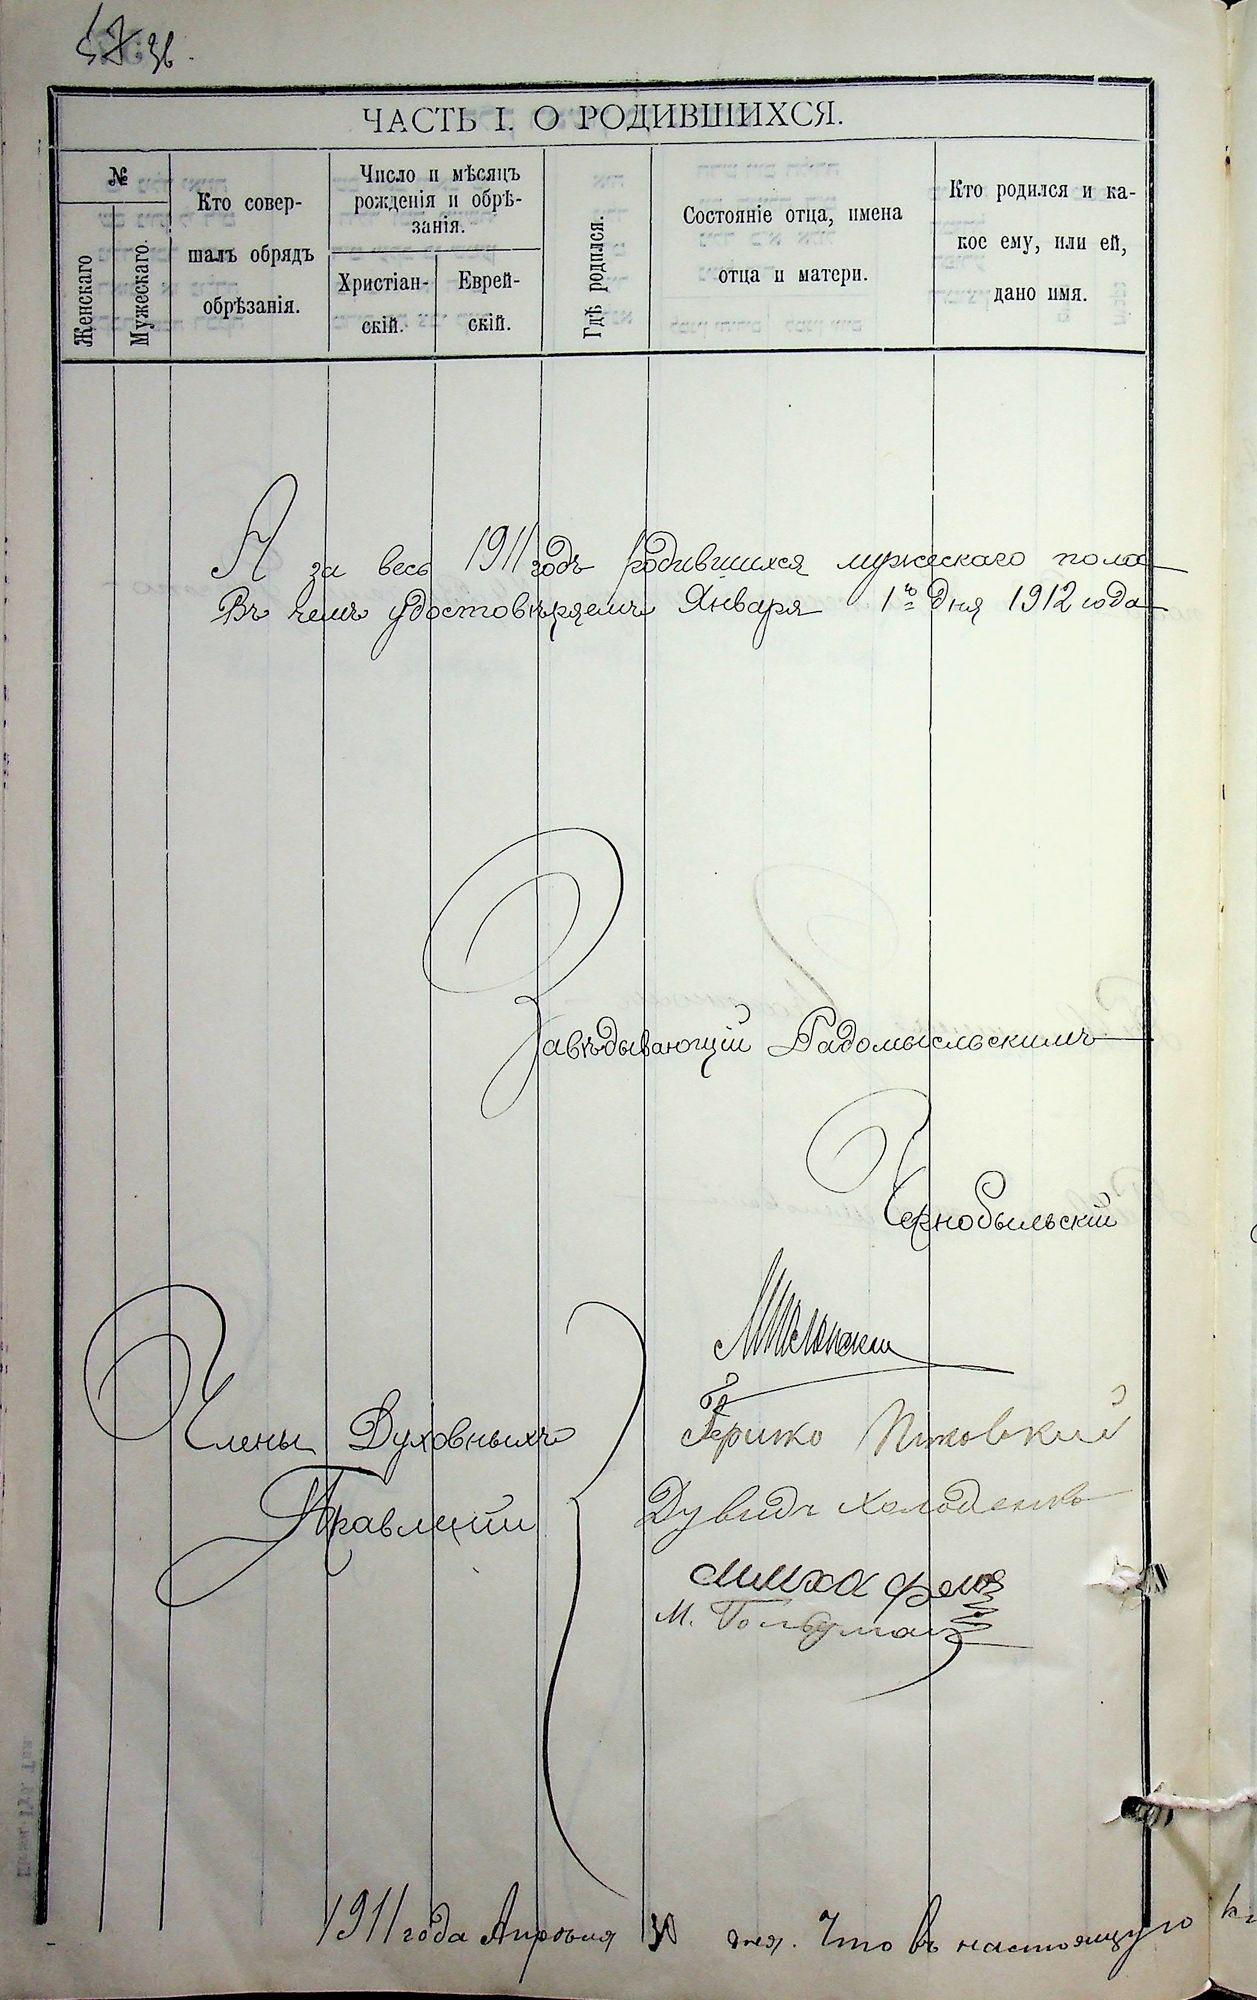 ЧАСТЬ I. О РОДИВШИХСЯ.
№
Женскаго
Мужескаго.
Кто совер-
шалъ обрядъ
обрѣзанія.
Число и мѣсяцъ
рожденія и обрѣ-
занія.
Христіан-
скій.
Еврей-
скій.
Гдѣ родился.
Состояніе отца, имена
отца и матери.
Кто родился и ка-
кое ему, или ей,
дано имя.
А за весь 1911 годъ родившихся мужескаго пола
Въ чемъ удостовѣряемъ Января 1го дня 1912 года
Завѣдывающій Радомысльскимъ
Чернобыльскій
Члены Духовныхъ
Правленій
Гершко
Дувидъ Холоденко
М.
1911 года Апрѣля дня. Что въ настоящую